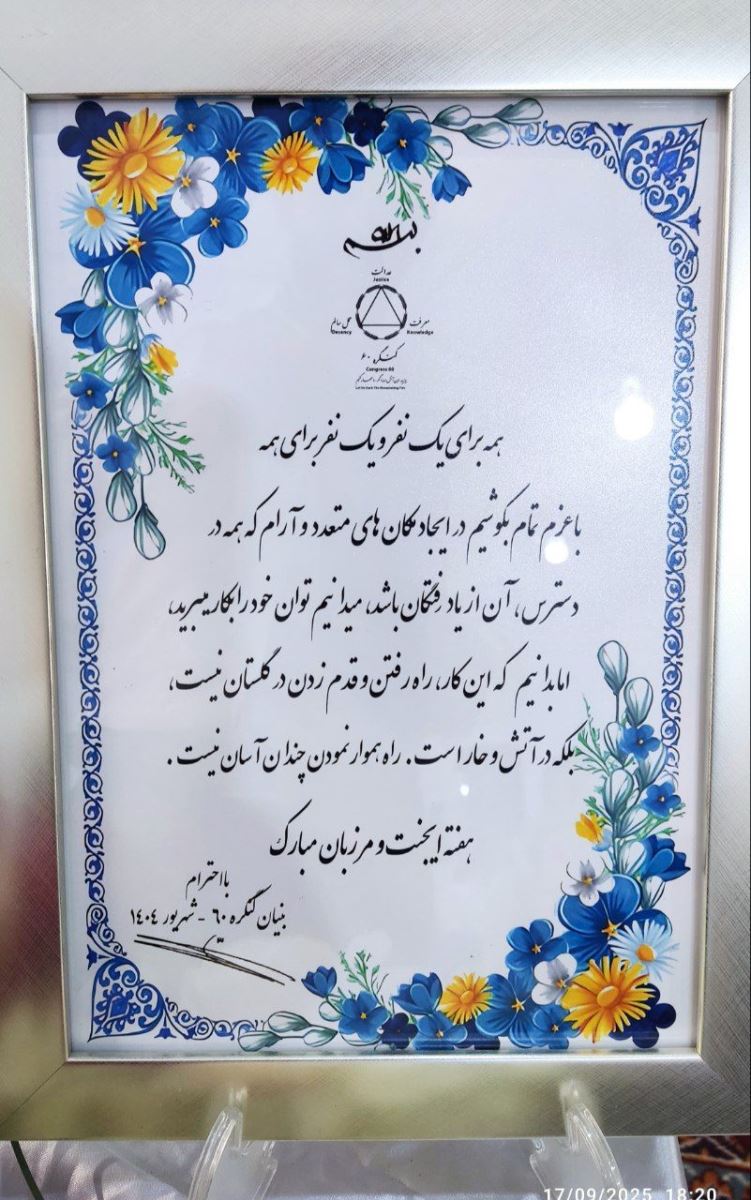 بسم الله
عدالت
Justice
عمل سالم
معرفت
Decency
Knowledge
کنگره ۶۰
Congress 60
همه برای یک نفر و یک نفر برای همه
با عزم تمام بکوشیم در ایجاد مکان های متعدد و آرام که همه در
دسترس، آن از یاد رفتگان باشد، میدانیم توان خود را بکار میبرید،
اما بدانیم که این کار، راه رفتن و قدم زدن در گلستان نیست،
بلکه در آتش و خار است. راه هموار نمودن چندان آسان نیست.
هفته ایجنت و مرزبان مبارک
بااحترام
بنیان کنگره ۶۰ - شهریور ۱۴۰۴
17/09/2025 18:20